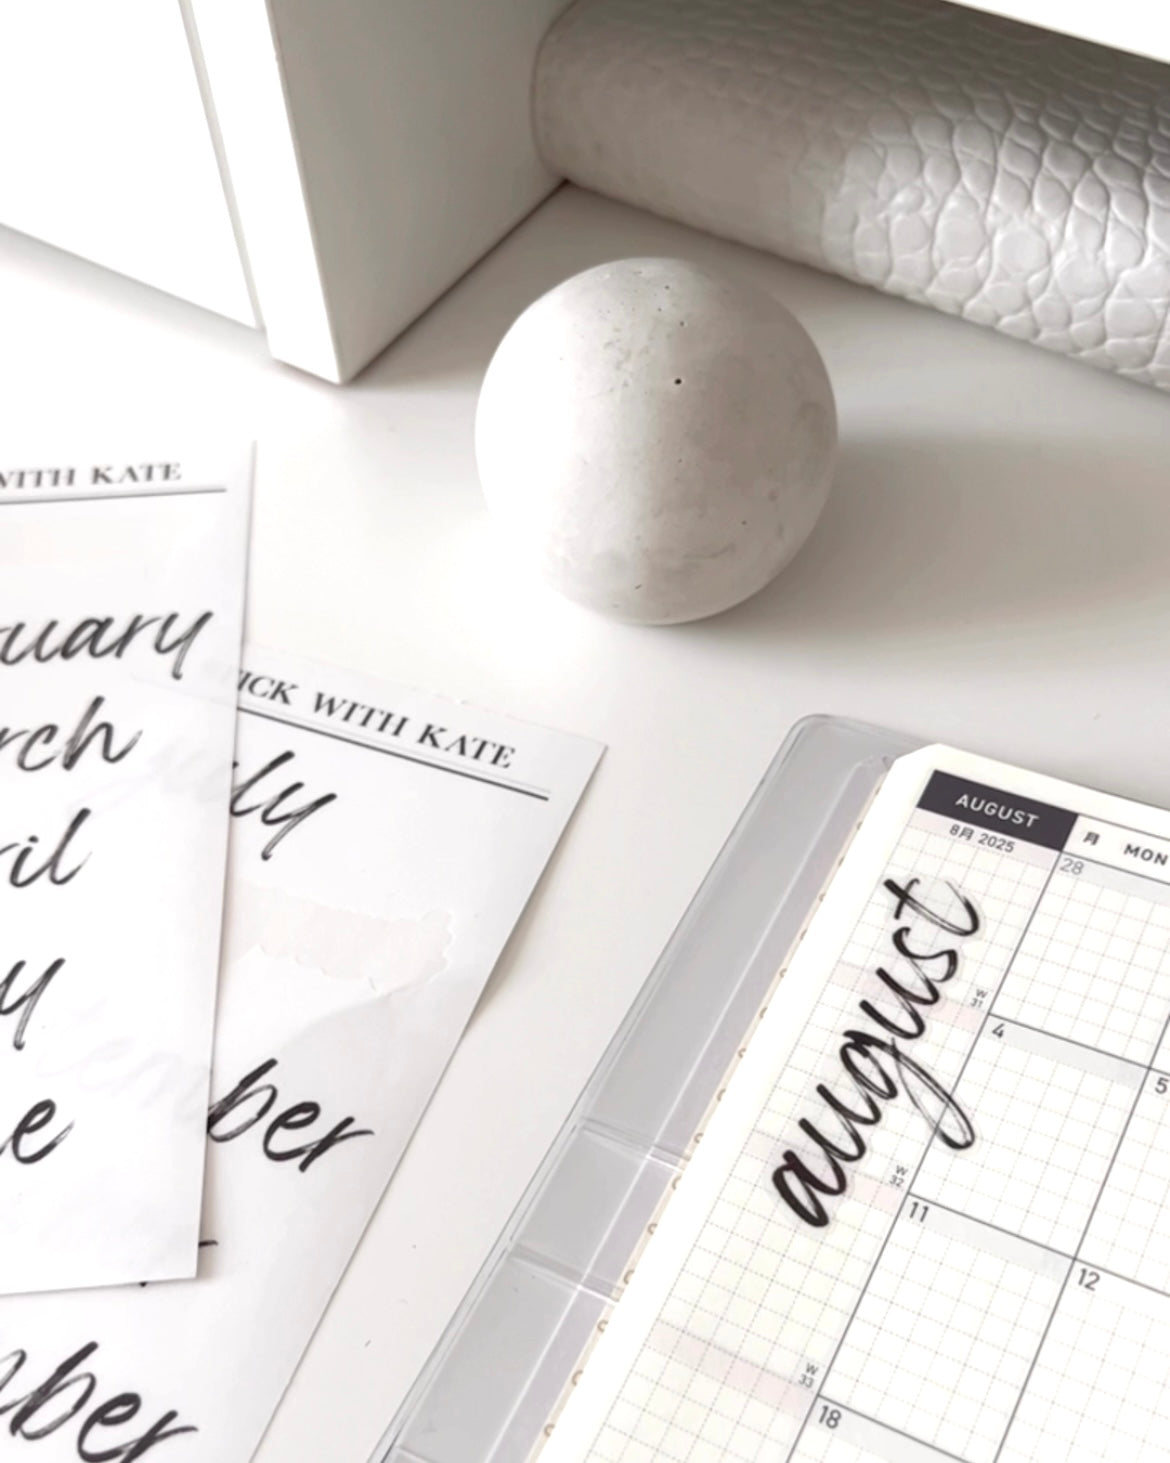 WITH KATE
uary
rch
ril
y
e
ICK WITH KATE
ly
ber
ber
AUGUST
8月 2025
月 MON
august
28
W
31
4
5
W
32
11
12
W
33
18